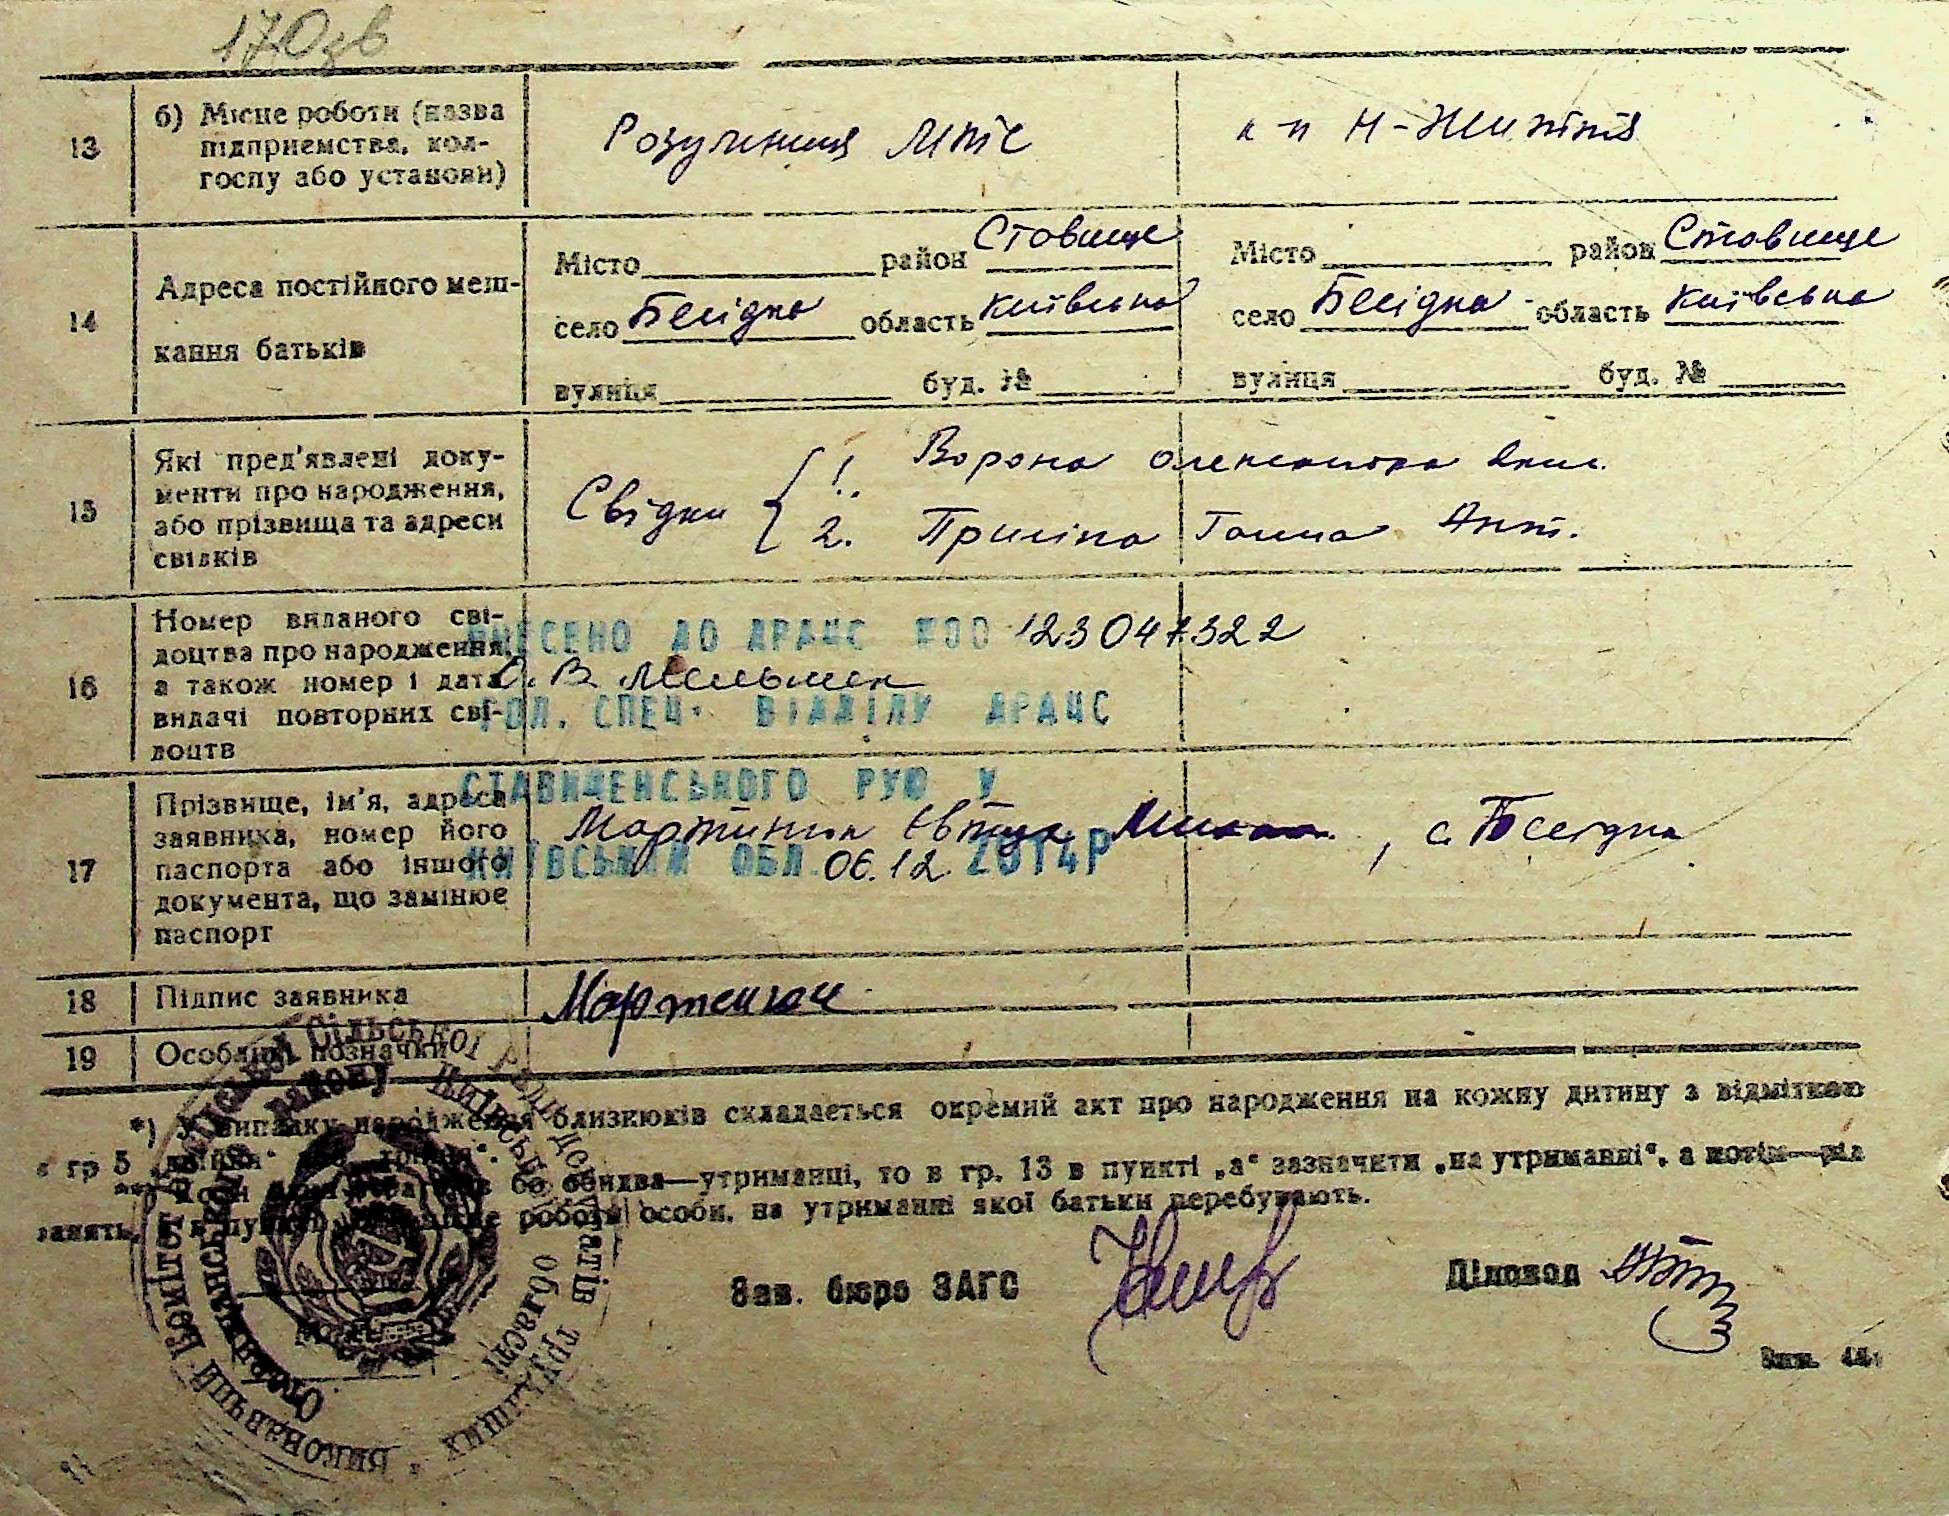 170 зв
13
б) Місце роботи (назва
підприємства, кол-
госпу або установи)
МТС
к-п Н-Життя
14
Адреса постійного меш-
кання батьків
Місто район Ставище
село Бесідка область Київська
вулиця буд. №
Місто район Ставище
село Бесідка область Київська
вулиця буд. №
15
Які пред'явлені доку-
менти про народження,
або прізвища та адреси
свідків
Свідки
1. Ворона Олександра
2. Ганна Ант.
16
Номер виданого сві-
доцтва про народження
а також номер і дата
видачі повторних сві-
доцтв
ВНЕСЕНО ДО ДРАЦС №00 123047322
О.В. Мельник
ГОЛ. СПЕЦ. ВІДДІЛУ ДРАЦС
СТАВИЩЕНСЬКОГО РУЮ У
КИЇВСЬКІЙ ОБЛ. 06.12. 2014Р
17
Прізвище, ім'я, адреса
заявника, номер його
паспорта або іншого
документа, що замінює
паспорт
Мартинюк , с. Бесідка
18
Підпис заявника
Мартенюк
19
Особливі позначки
*) У випадку народження близнюків складається окремий акт про народження на кожну дитину з відміткою
в гр 5 „двійня“
обидва—утриманці, то в гр. 13 в пункті „а“ зазначити „на утриманні“, а потім—рід
занять, в пункті роботи особи, на утриманні якої батьки перебувають.
Зав. бюро ЗАГС
Діловод
Виконавчий Комітет Бесідської Сільської Ради депутатів трудящих
Ставищанського району Київської області